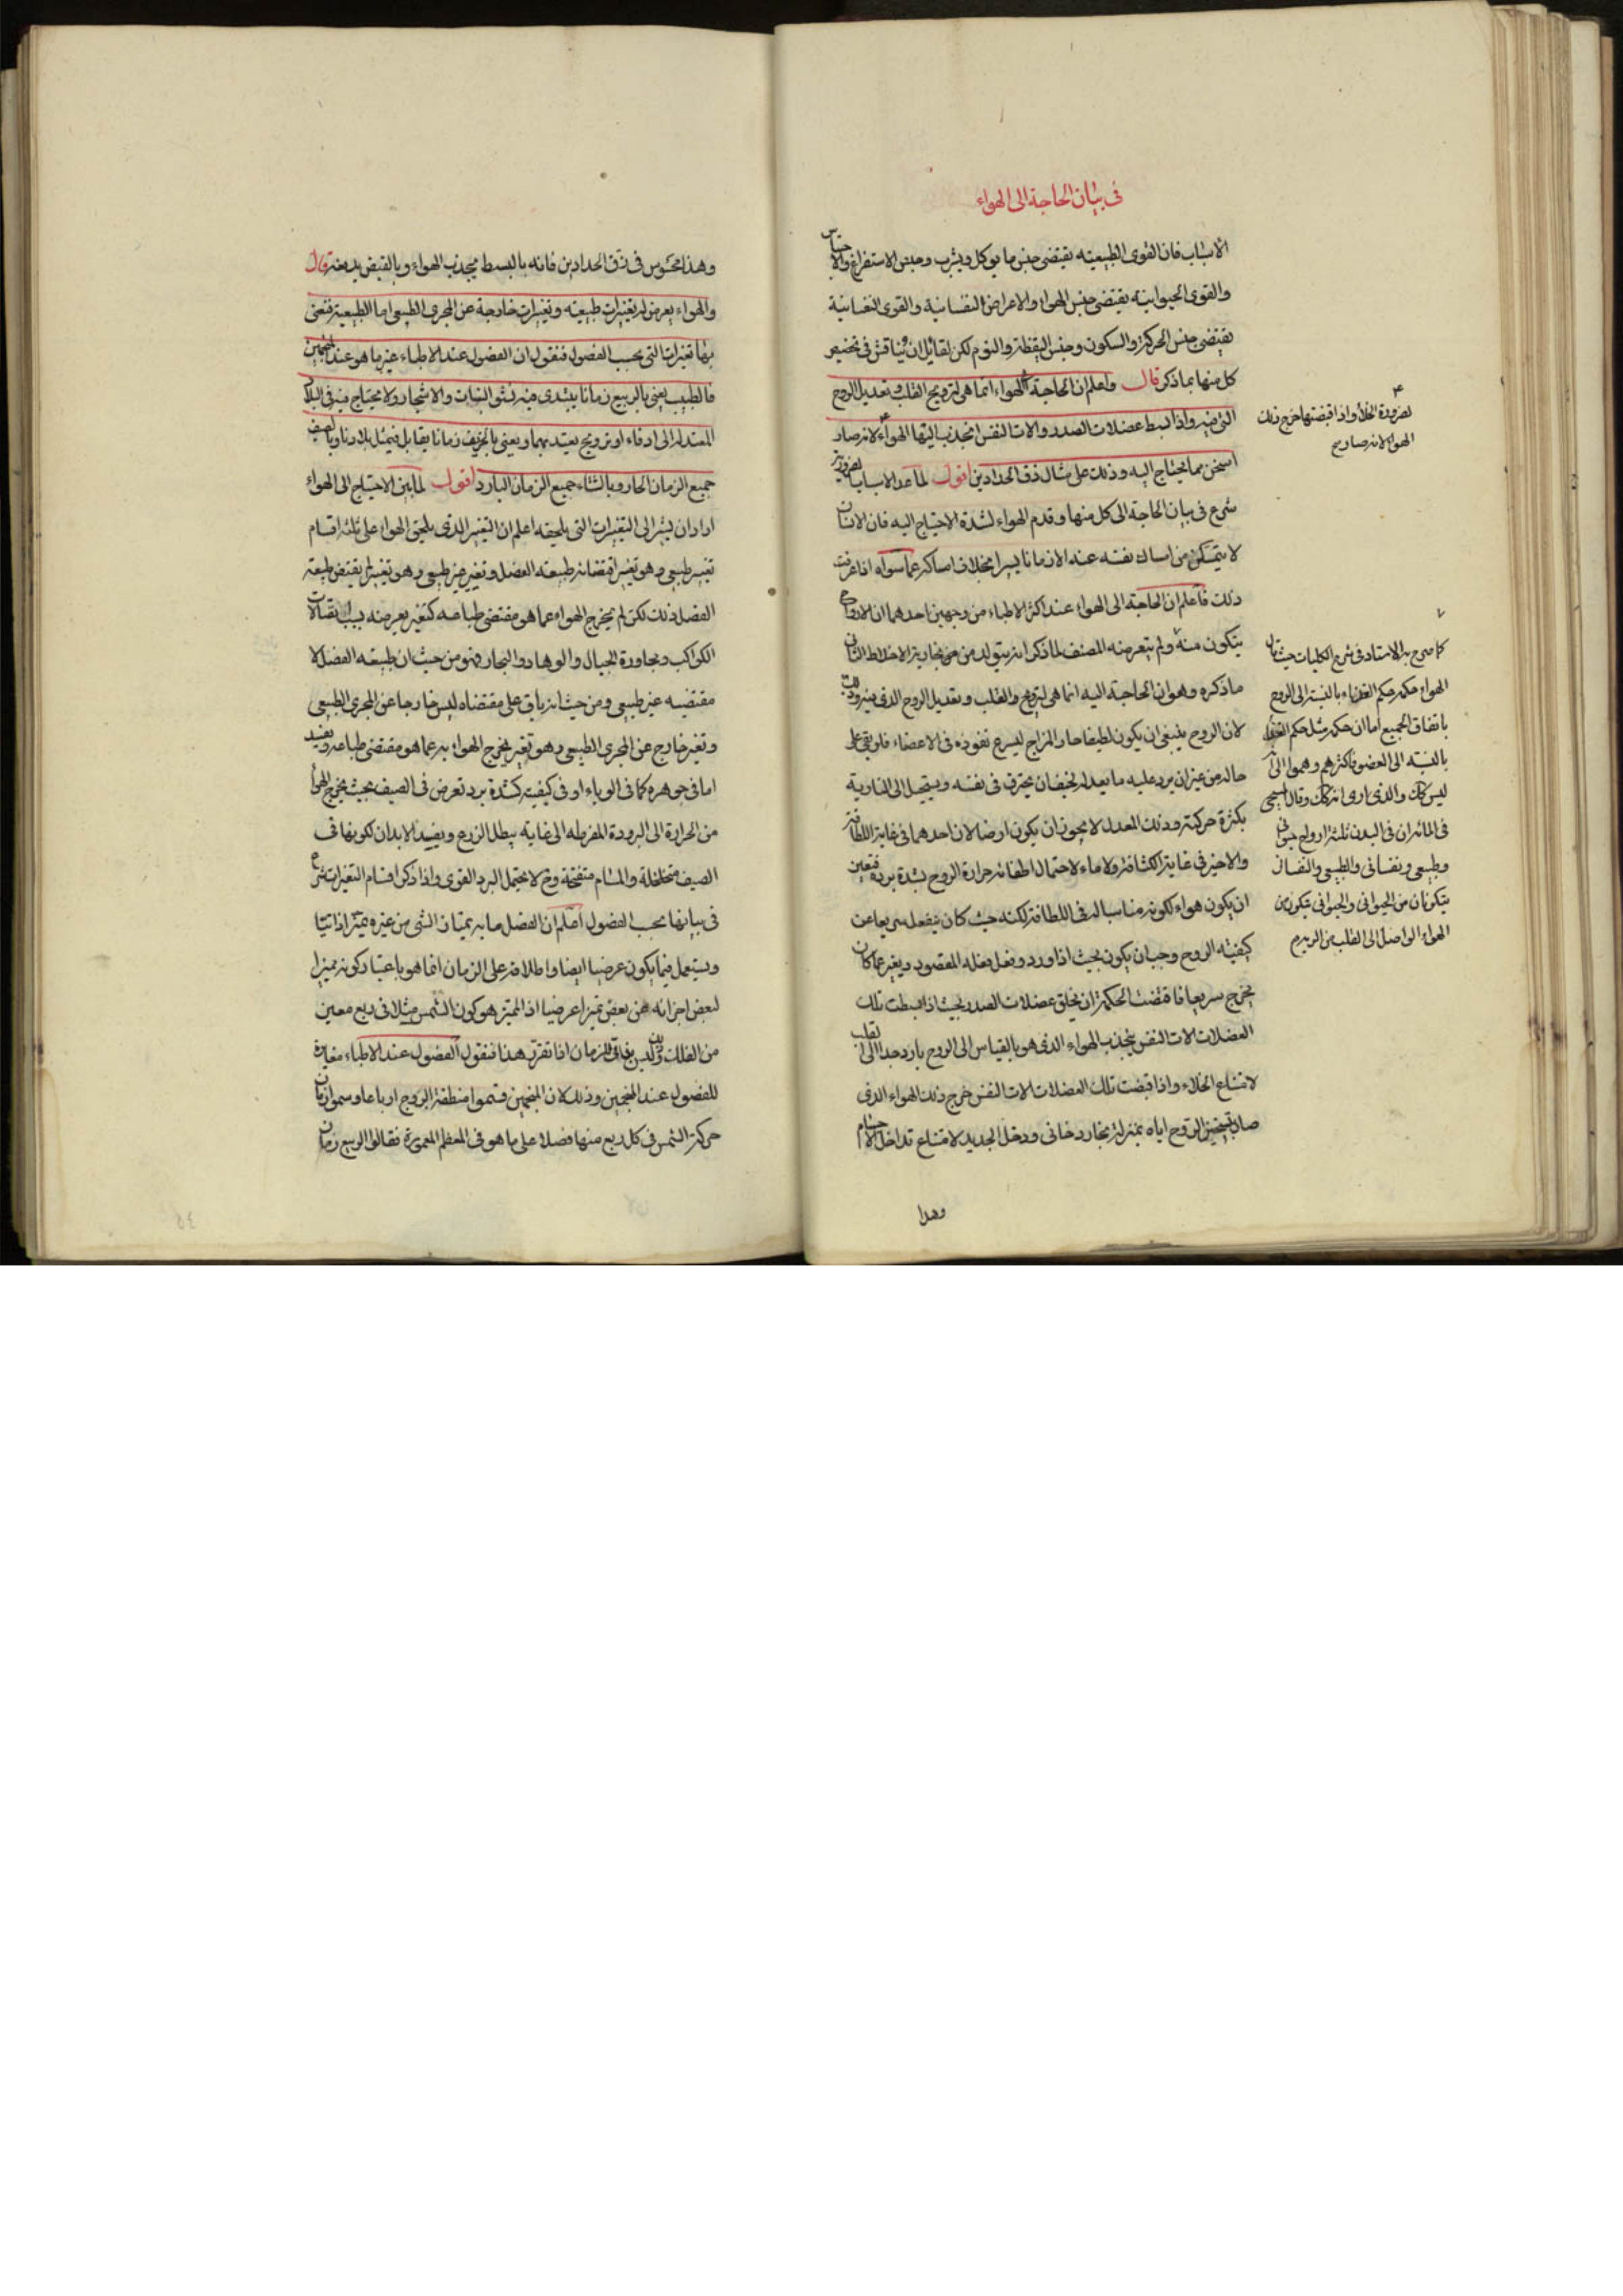 في بيان الحاجة الى الهواء
الاسباب فان القوى الطبيعيه يقتضى جنس ما يوكل ويشرب وجنس الاستفراغ والاحتباس
والقوى الحيوانيه يقتضى جنس الهواء والاعراض النفسانية والقوى النفسانية
تقتضى جنس الحركة والسكون وجنس اليقظة والنوم لكن لقائل ان يناقش فى تخصيص
كل منها بما ذكر قال واعلم ان الحاجة الى الهواء انما هى لترويح القلب وتعديل الروح
التى فيه واذا انبسط عضلات الصدر والات النفس انجذب اليها الهواء لانه صار
اسخن مما يحتاج اليه وذلك على مثال زق الحدادين اقول لما عد الاسباب الضرورية
شرع فى بيان الحاجة الى كل منها وقدم الهواء لشدة الاحتياج اليه فان الانسان
لا يتمكن من امساك نفسه عنه الا زمانا يسيرا بخلاف امساكه عما سواه اذا عرفت
ذلك فاعلم ان الحاجة الى الهواء عند اكثر الاطباء من وجهين احدهما ان الارواح
يتكون منه ولم يتعرض له المصنف لما ذكر انه يتولد من بخارية الاخلاط الثانى
ما ذكره وهو ان الحاجة اليه انما هى لترويح القلب وتعديل الروح الذى فيه وذلك
لان الروح ينبغى ان يكون لطيفا حار المزاج ليسرع نفوذه فى الاعضاء فلو بقى على
حاله من غير ان يرد عليه ما يعدله لخيف ان يحترق فى نفسه ويستحيل الى النارية
بكثرة حركته وذلك المعدل لا يجوز ان يكون ارضا لان احدهما فى غاية اللطافة
والاخر فى غاية الكثافة ولا ماء لاحتمال اطفائه حرارة الروح لشدة برده فتعين
ان يكون هواء لكونه مناسبا له فى اللطافة لكنه حيث كان ينفعل سريعا عن
كيفيته الروح وجب ان يكون بحيث اذا ورد وفعل فعله المقصود وتغير عما كان
يخرج سريعا فاقتضت الحكمة ان يخلق عضلات الصدر بحيث اذا انبسطت تلك
العضلات الات النفس ينجذب الهواء الذى هو بالقياس الى الروح بارد جدا الى القلب
لامتناع الخلاء واذا قبضت تلك العضلات الات النفس خرج ذلك الهواء الذى
صار بتسخين الروح اياه بمنزلة بخار دخانى ودخل الجديد لامتناع تداخل الاجسام
وهذا
لضرورة الخلأ واذا قبضتها خرج ذلك
الهواء لانه صار ح
كما صرح به الاستاد فى شرح الكليات حيث قال
الهواء حكمه حكم الغذاء بالنسبة الى الروح
باتفاق الجميع اما ان حكمه مثل حكم الغذاء
بالنسبه الى العضو فاكثرهم وهموا الى انه
ليس كك والذى ارى انه كك وقال المسيحى
فى المائه ان فى البدن ثلثة ارواح حيوانى
وطبيعى ونفسانى والطبيعى والنفسانى
يتكونان من الحيوانى والحيوانى يتكون من
الهواء الواصل الى القلب من الرية م
وهذا محسوس فى زق الحدادين فانه بالبسط يجذب الهواء وبالقبض يدفعه قال
والهواء يعرض له تغيرات طبيعيه وتغيرات خارجة عن المجرى الطبيعى اما الطبيعية فنعنى
بها تغيرات التى بحسب الفصول فنقول ان الفصول عند الاطباء غير ما هو عند المنجمين
فالطبيب يعنى بالربيع زمانا يبتدى فيه نشو النبات والاشجار ولا يحتاج فيه فى البلاد
المعتدلة الى ادفاء او ترويح يعتد بهما ويعنى بالخريف زمانا يقابله فى مثل بلادنا وبالصيف
جميع الزمان الحار وبالشتاء جميع الزمان البارد اقول لما بين الاحتياج الى الهواء
اراد ان يشير الى التغيرات التى يلحقه اعلم ان التغير الذى يلحق الهواء على ثلثة اقسام
تغير طبيعى وهو تغير اقتضائه طبيعه الفصل وتغير غير طبيعى وهو تغير لم يقتض طبيعة
الفصل ذلك لكن لم يخرج الهواء عما هو مقتضى طباعه كتغير يعرض له بسبب اتصالات
الكواكب ومجاورة الجبال والوهاد والبحار فهو من حيث ان طبيعه الفصل لا
مقتضيه غير طبيعى ومن حيث انه باق على مقتضاه ليس خارجا عن المجرى الطبيعى
وتغير خارج عن المجرى الطبيعى وهو تغير يخرج الهواء به عما هو مقتضى طباعه ويفسد
اما فى جوهره كما فى الوباء او فى كيفيته كشدة برد تعرض فى الصيف بحيث يخرج الهواء
من الحرارة الى البرودة المفرطه الى غاية يبطل الزرع ويفسد الابدان لكونها فى
الصيف متخلخلة والمسام منفتحة وح لا يحتمل البرد القوى واذا ذكر اقسام التغيرات شرع
فى بيانها بحسب الفصول اعلم ان الفصل ما به يمتاز الشى من غيره تميزا ذاتيا
ويستعمل فيما يكون عرضيا ايضا واطلاقه على الزمان انما هو باعتبار كونه مميزا
لبعض اجزائه عن بعض تميزا عرضيا اذ المميز هو كون الشمس مثلا فى ربع معين
من الفلك وذلك ليس بذاتى للزمان اذا تقرر هذا فنقول الفصول عند الاطباء مغايرة
للفصول عند المنجمين وذلك لان المنجمين قسموا منطقة البروج ارباعا وسموا زمان
حركة الشمس فى كل ربع منها فصلا على ما هو فى المعظم المعمورة فقالوا الربيع زمان